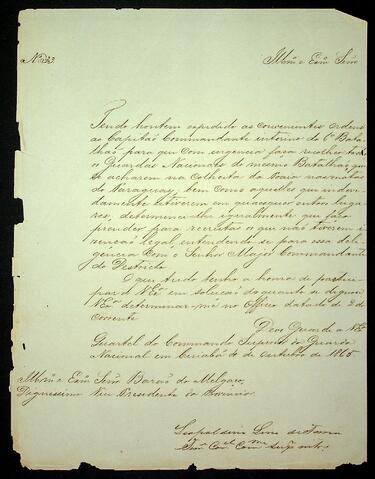 Illmº e Exmº Senr
Tendo hontem expedido as convenientes ordens
ao Capitão Commandante interino do 6º Bata
lhão para que com urgencia faça recolher todos
os Guardas Nacionaes do mesmo Batalhão que
se acharem na Colheita da
do Paraguay, bem como aquelles que indevi
damente estiverem em quaesquer outros luga
res, determinei-lhe igualmente que faça
prender para recrutas os que não tiverem i
zenção legal, entendendo-se para essa deli
gencia com o Senhor Major Commandante
do Districto.
O que tudo tenho a honra de partici
par a V.Exª em solução do quanto se dignou
V.Exª determinar-me no Officio datado de 2 do
corrente
Deos Guarde a V.Exª
Quartel do Commando Superior da Guarda
Nacional em Cuiabá 4 de Outubro de 1865
Illmº e Exmº Senr Barão de Melgaço,
Dignissimo Vice Presidente da Provincia.
Leopoldino Lino de Faria
Tene Corel Come